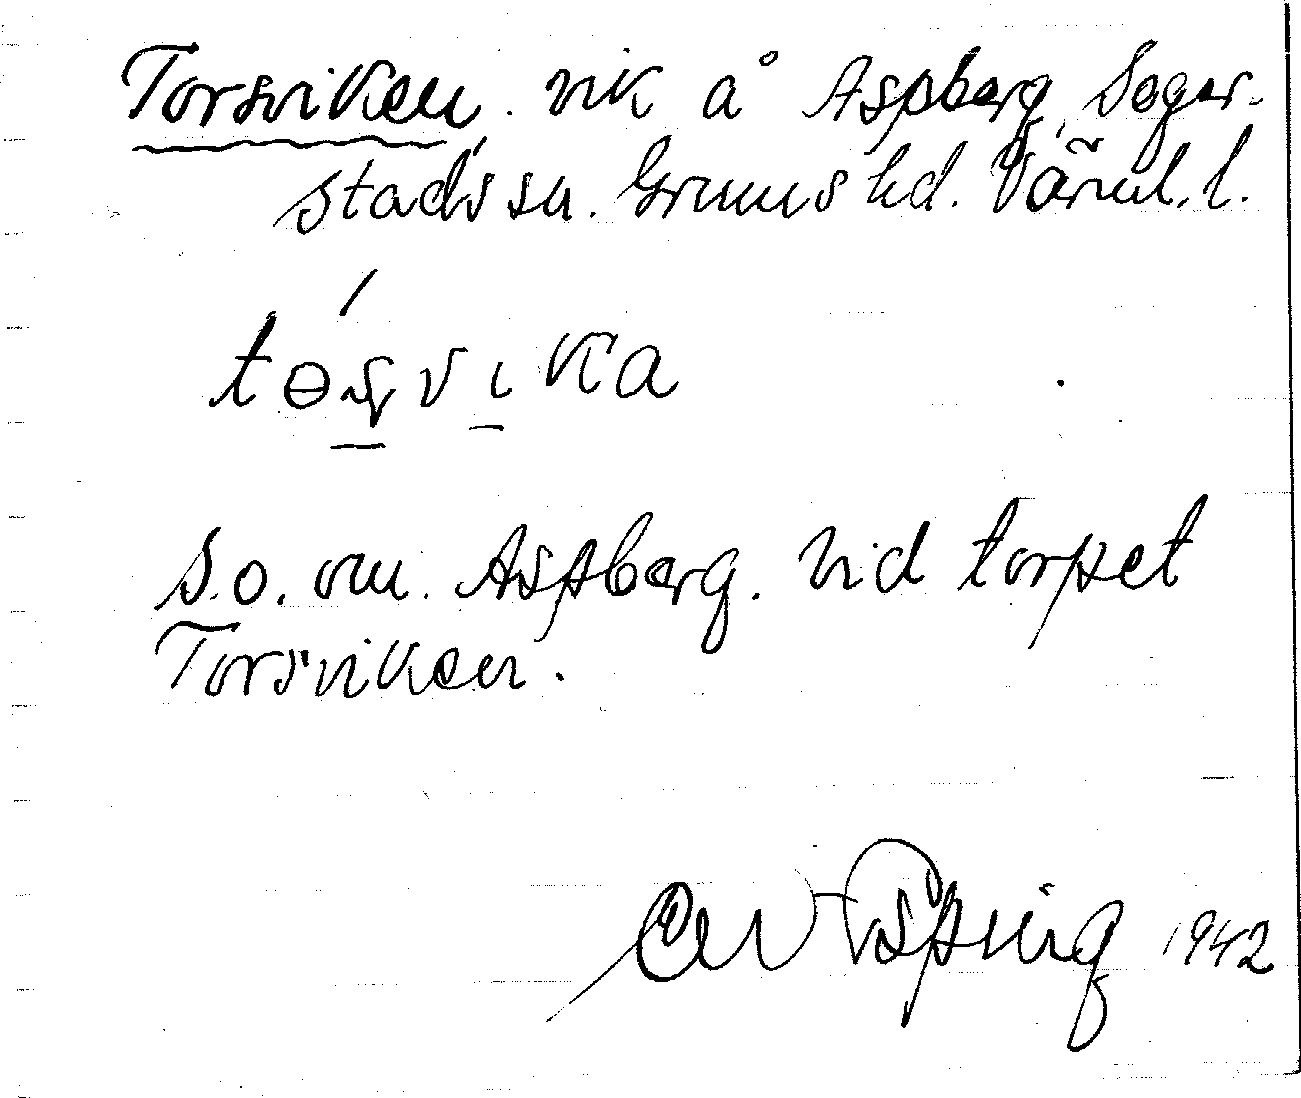 Torsviken. vik å Aspberg, Seger-
stads sn. Grums hd. Värml. l.
s.o. om Aspberg. Vid torpet
Torsviken.
1942